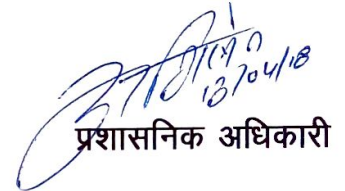 13/04/18
प्रशासनिक अधिकारी